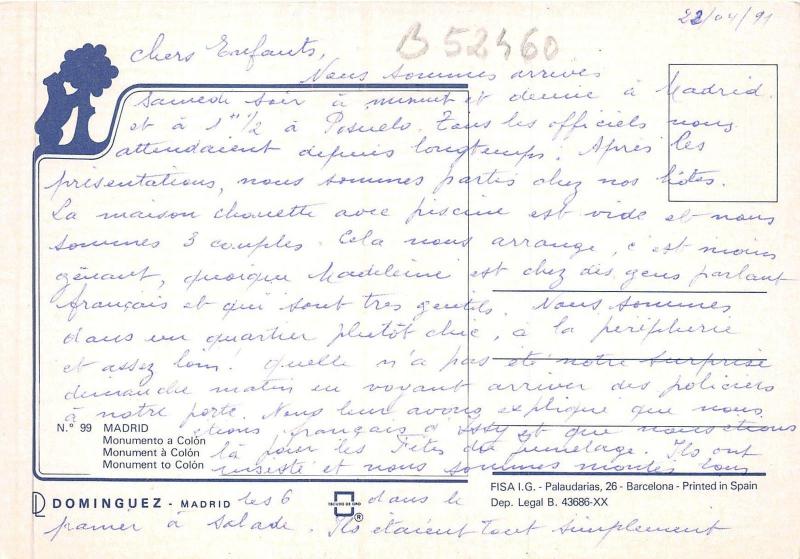 22/04/91
B 52460
Chers Enfants,
Nous sommes arrivés
samedi soir à minuit et demie à Madrid
et à 1 H 1/2 à Posuelo. Tous les officiels nous
attendaient depuis longtemps. Après les
présentations, nous sommes partis chez nos hôtes.
La maison chouette avec piscine est vide et nous
sommes 3 couples. Cela nous arrange, c'est moins
gênant, quoique Madeleine est chez des gens parlant
français et qui sont très gentils. Nous sommes
dans un quartier plutôt chic, à la périphérie
et assez loin. Quelle n'a pas été notre surprise
dimanche matin en voyant arriver des policiers
à notre porte. Nous leur avons expliqué que nous
étions français d'Issy et que nous étions
là pour les Fêtes du Jumelage. Ils ont
insisté et nous sommes montés tous
les 6 dans le
panier à salade. Ils étaient tout simplement
N.° 99 MADRID
Monumento a Colón
Monument à Colón
Monument to Colón
DOMINGUEZ - MADRID
®
FISA I.G. - Palaudarias, 26 - Barcelona - Printed in Spain
Dep. Legal B. 43686-XX